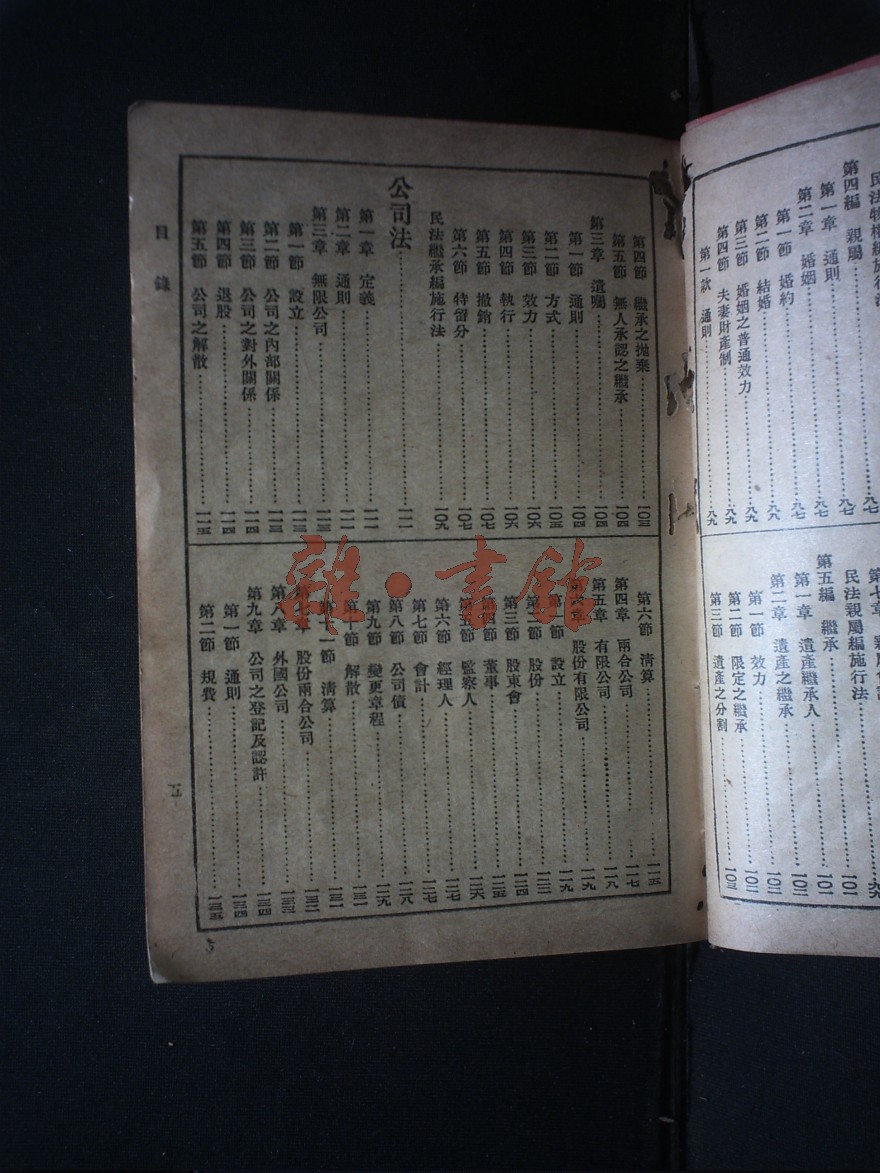 民法物權編施行法
第四編 親屬……八七
第一章 通則……八七
第二章 婚姻……八七
第一節 婚約……八七
第二節 結婚……八九
第三節 婚姻之普通效力……八九
第四節 夫妻財產制……八九
第一款 通則……八九
民法親屬編施行法……一〇一
第五編 繼承……一〇一
第一章 遺產繼承人……一〇一
第二章 遺產之繼承……一〇二
第一節 效力……一〇二
第二節 限定之繼承……一〇二
第三節 遺產之分割……一〇三
第四節 繼承之拋棄……一〇三
第五節 無人承認之繼承……一〇四
第三章 遺囑……一〇四
第一節 通則……一〇四
第二節 方式……一〇五
第三節 效力……一〇六
第四節 執行……一〇六
第五節 撤銷……一〇七
第六節 特留分……一〇七
民法繼承編施行法……一〇九
公司法……一一一
第一章 定義……一一一
第二章 通則……一一一
第三章 無限公司……一一三
第一節 設立……一一三
第二節 公司之內部關係……一一三
第三節 公司之對外關係……一一四
第四節 退股……一一四
第五節 公司之解散……一一五
第六節 清算……一一五
第四章 兩合公司……一一七
第五章 有限公司……一一八
第六章 股份有限公司……一一九
第一節 設立……一一九
第二節 股份……一二三
第三節 股東會……一二四
第四節 董事……一二五
第五節 監察人……一二六
第六節 經理人……一二七
第七節 會計……一二七
第八節 公司債……一二八
第九節 變更章程……一二九
第十節 解散……一三一
第十一節 清算……一三一
第七章 股份兩合公司……一三二
第八章 外國公司……一三三
第九章 公司之登記及認許……一三四
第一節 通則……一三四
第二節 規費……一三五
目錄
五
雜·書館